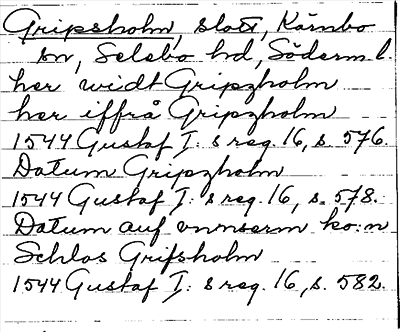 Gripsholm, slott, Kärnbo
sn, Selebo hd, Söderm.l.
her widt Gripzholm
her iffrå Gripzholm
1544 Gustaf I: s reg. 16, s. 576.
Datum Gripzholm
1544 Gustaf I: s reg. 16, s. 578.
Datum auf vnnserm ko:n
Schlos Grifsholm
1544 Gustaf I: s reg. 16, s. 582.